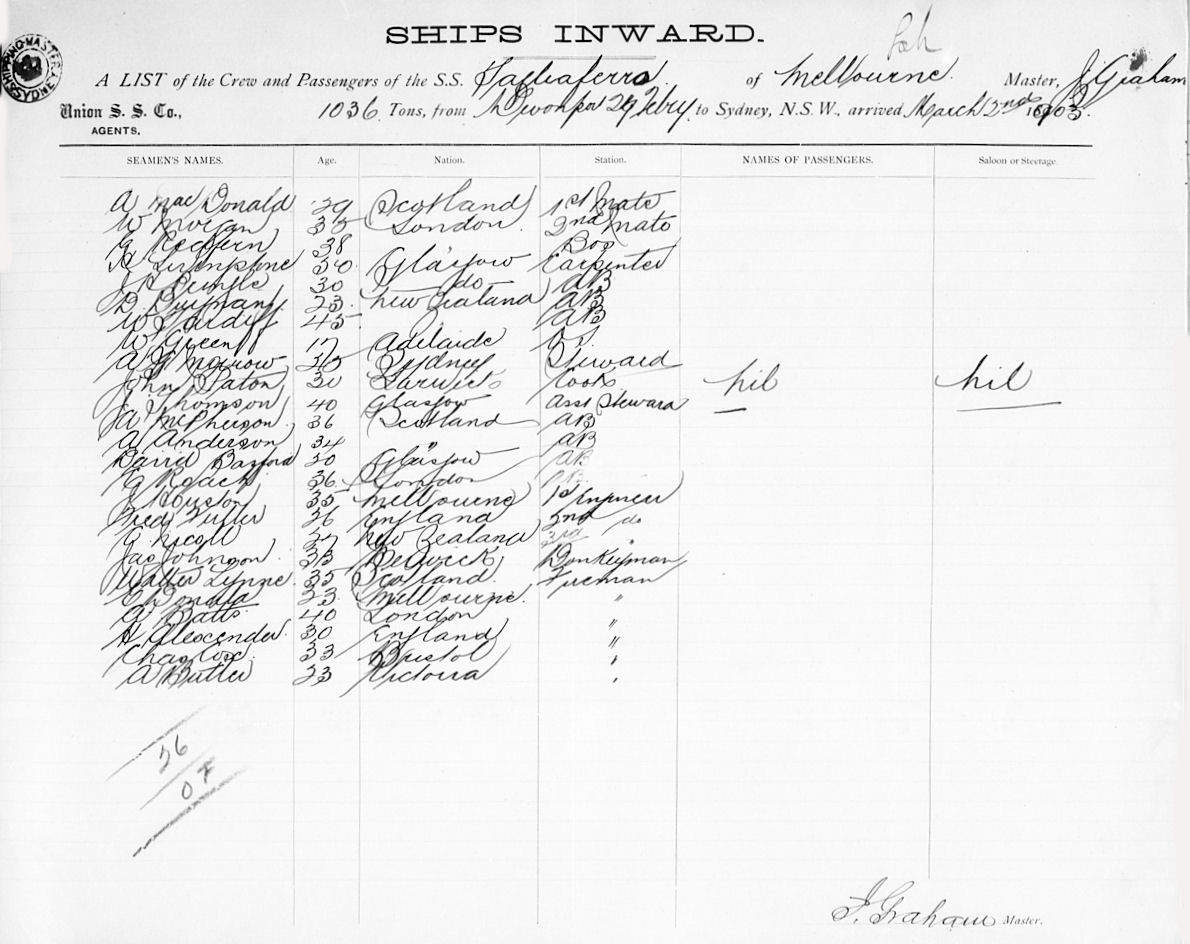 SHIPS INWARD.
A LIST of the Crew and Passengers of the S.S. Tagliaferro of Melbourne. Master, J Graham
Union S. S. Co., 1036 Tons, from Devonport Febry to Sydney, N.S.W., arrived March 2nd 1903.
AGENTS.
SEAMEN'S NAMES. Age. Nation. Station. NAMES OF PASSENGERS. Saloon or Steerage.
A Mac Donald 29 Scotland 1st Mate
W Morgan 35 London 2nd Mate
G 38 " Bos
Livingstone 30 Glasgow Carpenter
30 do AB
D 23 New Zealand AB
W 45 " AB
W Green 17 Adelaide
A Morrow Sydney Steward
John Paton 30 Cook nil nil
J Thomson 40 Glasgow Asst Steward
McPherson 36 Scotland AB
A Anderson 34 " AB
David 30 Glasgow AB
G Roach 36 London
J Houston 35 Melbourne 1st Engineer
Fred 26 England 2nd do
G Nicoll New Zealand 3rd "
Jas Johnson 33 Berwick Donkeyman
Walter Lynne 35 Scotland Fireman
23 Melbourne "
G Batts 40 London "
H Alexcender 30 England "
Chas Cox 33 Bristol "
A Butler 23 Victoria "
26
07
J. Graham Master.